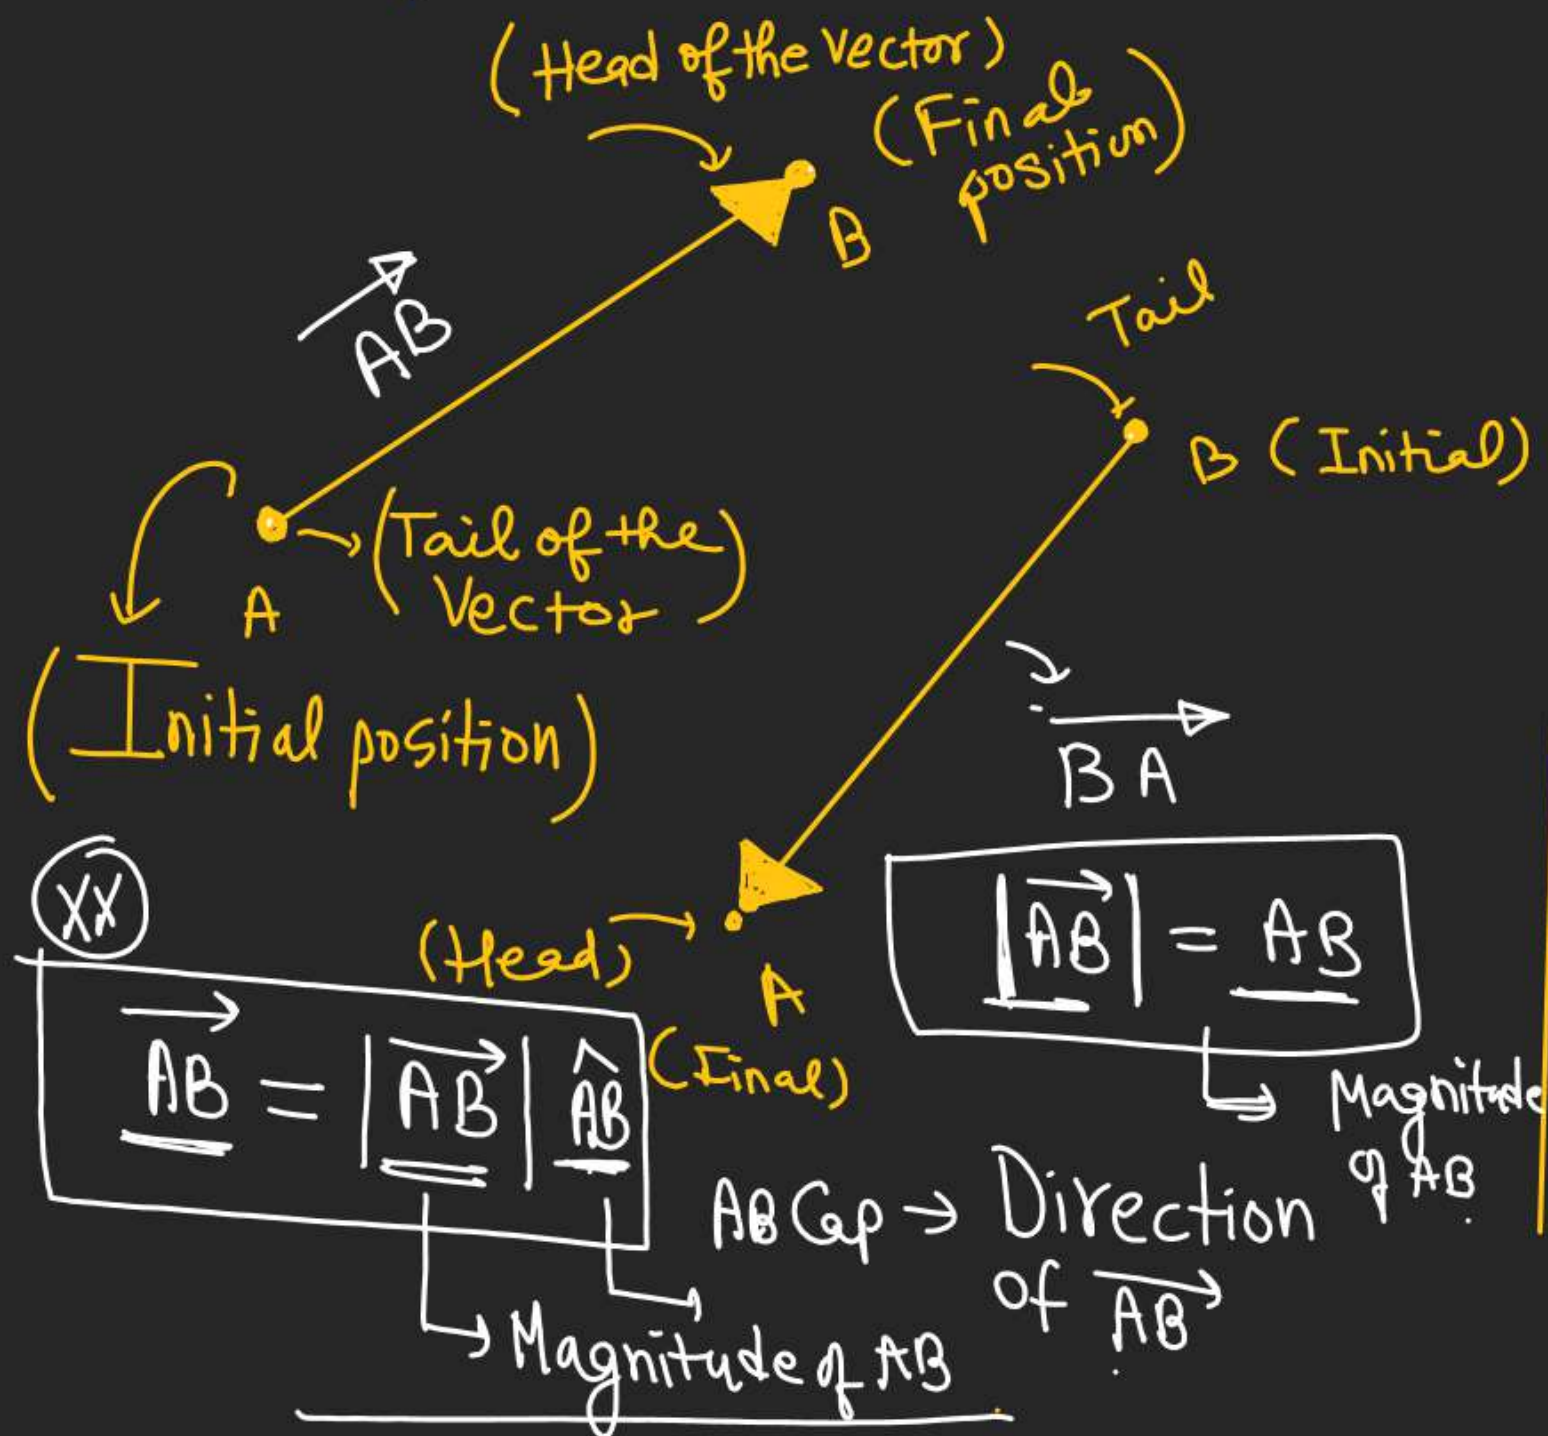 (Head of the vector)
(Final
position)
B
AB
Tail
B (Initial)
(Tail of the
Vector)
A
(Initial position)
BA
XX
(Head)
A
(Final)
|AB| = AB
AB = |AB| ÂB
Magnitude
of AB
AB Cap → Direction
of AB
Magnitude of AB